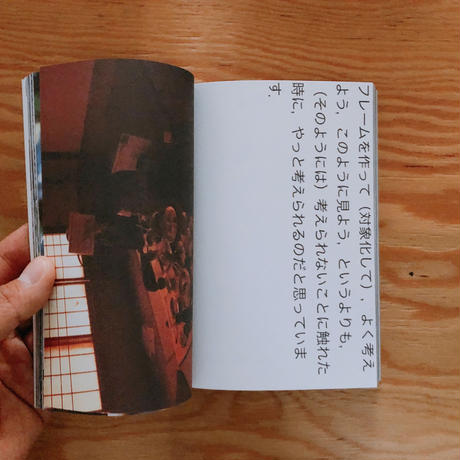 フレームを作って（対象化して），よく考え
よう，このように見よう，というよりも，
（そのようには）考えられないことに触れた
時に，やっと考えられるのだと思っていま
す．